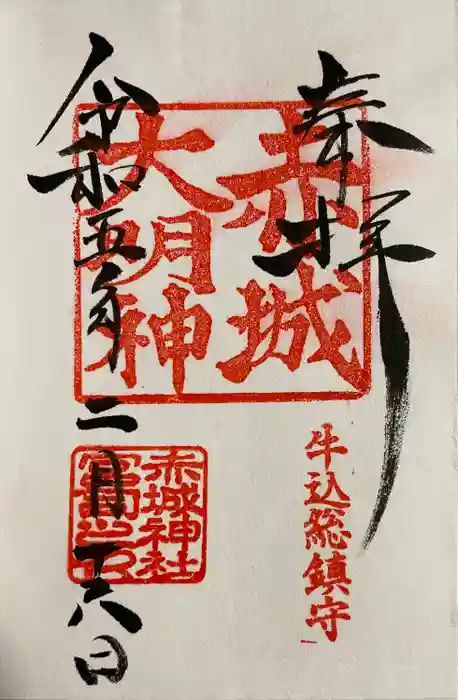 奉拝
赤城
大明神
牛込総鎮守
赤城神社
宮司之印
令和五年二月十六日